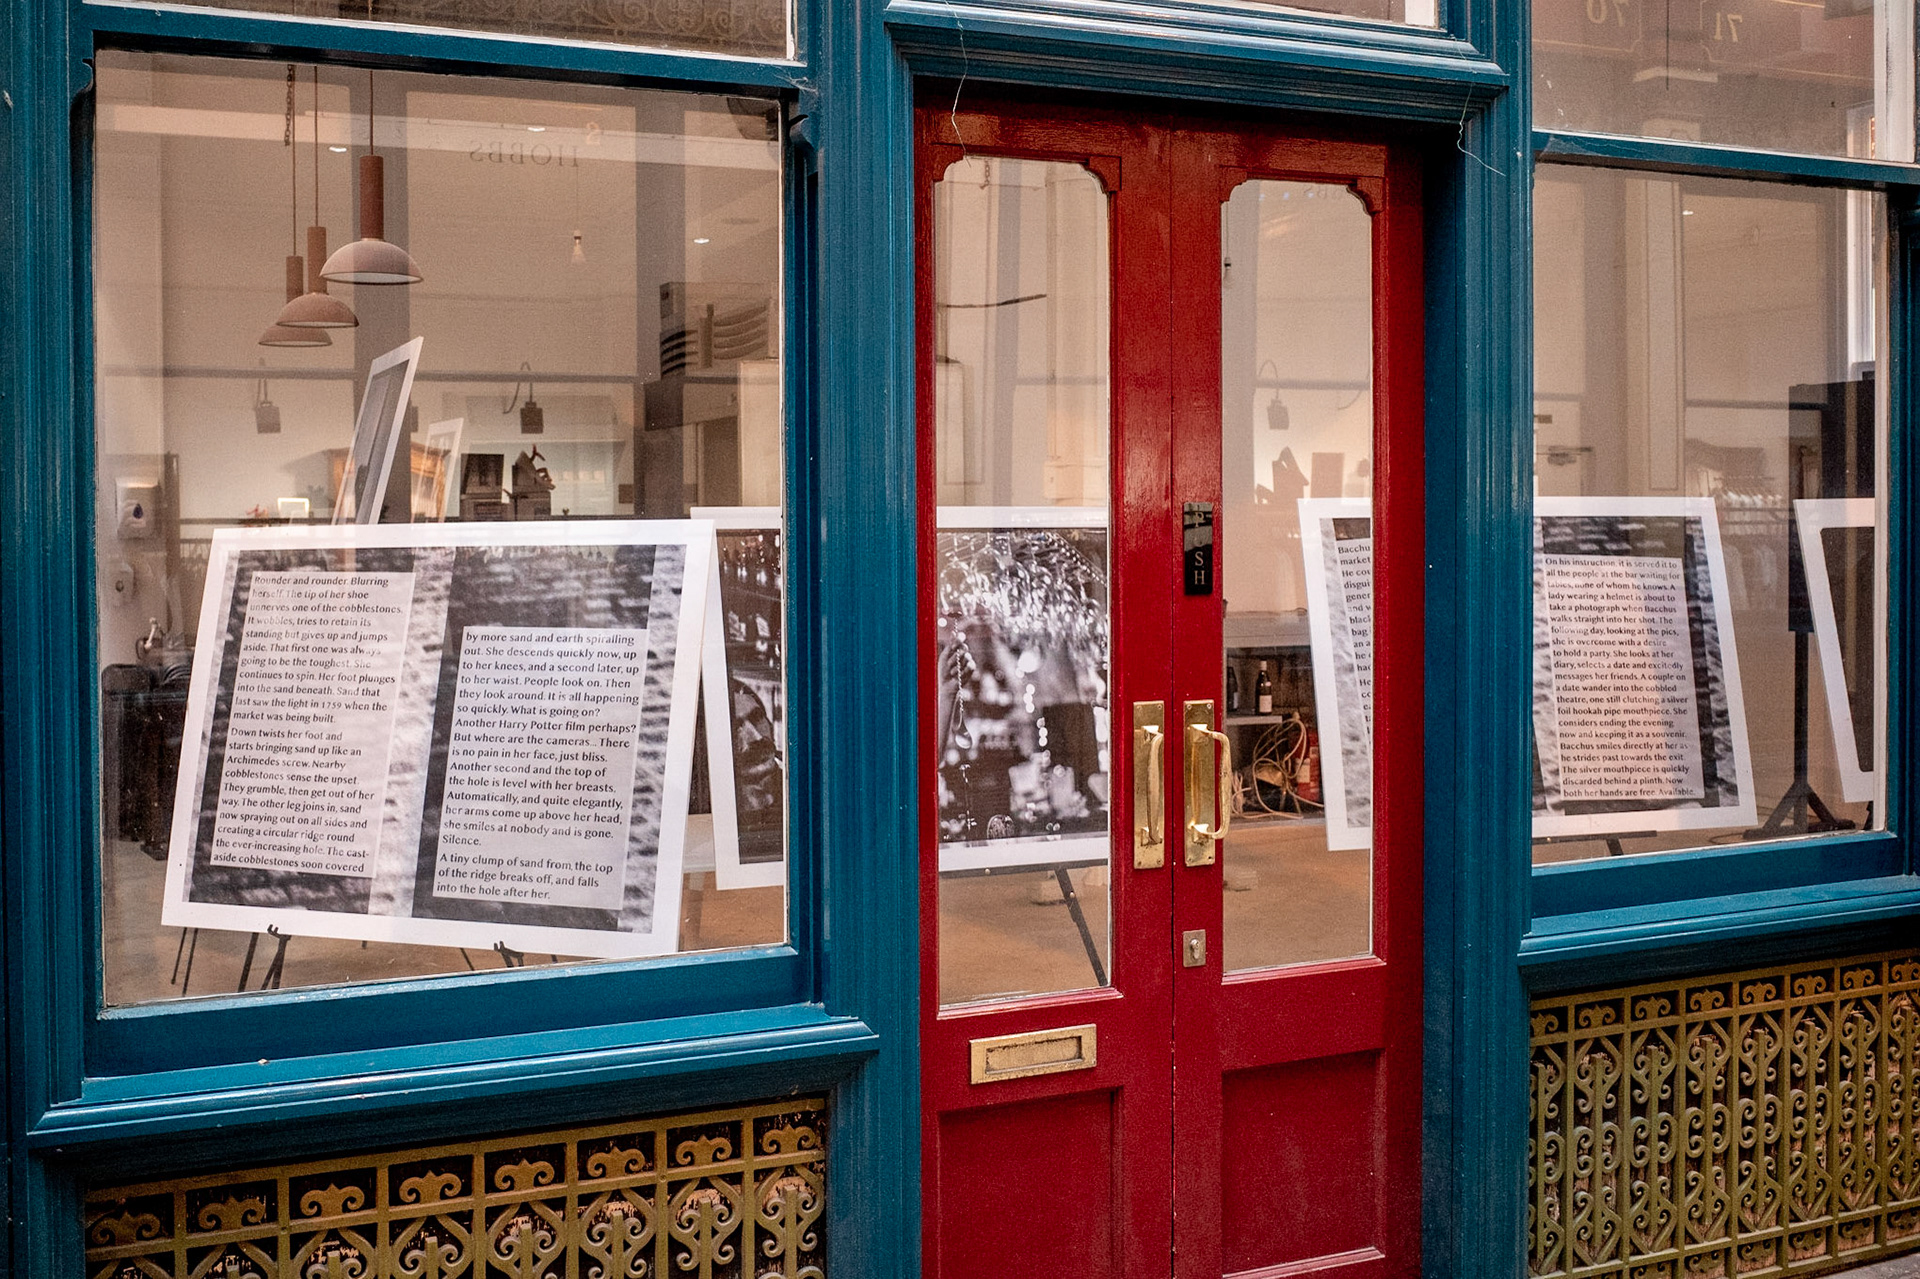 70
71
HOBBS
Rounder and rounder. Blurring
herself. The tip of her shoe
unnerves one of the cobblestones.
It wobbles, tries to retain its
standing but gives up and jumps
aside. That first one was always
going to be the toughest. She
continues to spin. Her foot plunges
into the sand beneath. Sand that
last saw the light in 1759 when the
market was being built.
Down twists her foot and
starts bringing sand up like an
Archimedes screw. Nearby
cobblestones sense the upset.
They grumble, then get out of her
way. The other leg joins in, sand
now spraying out on all sides and
creating a circular ridge round
the ever-increasing hole. The cast-
aside cobblestones soon covered
by more sand and earth spiralling
out. She descends quickly now, up
to her knees, and a second later, up
to her waist. People look on. Then
they look around. It is all happening
so quickly. What is going on?
Another Harry Potter film perhaps?
But where are the cameras... There
is no pain in her face, just bliss.
Another second and the top of
the hole is level with her breasts.
Automatically, and quite elegantly,
her arms come up above her head,
she smiles at nobody and is gone.
Silence.
A tiny clump of sand from the top
of the ridge breaks off, and falls
into the hole after her.
PUSH
Bacchu
market
He cou
disgui
gener
and w
black
bag
an a
he
had
He
co
ea
On his instruction, it is served it to
all the people at the bar waiting for
tables, none of whom he knows. A
lady wearing a helmet is about to
take a photograph when Bacchus
walks straight into her shot. The
following day, looking at the pics,
she is overcome with a desire
to hold a party. She looks at her
diary, selects a date and excitedly
messages her friends. A couple on
a date wander into the cobbled
theatre, one still clutching a silver
foil hookah pipe mouthpiece. She
considers ending the evening
now and keeping it as a souvenir.
Bacchus smiles directly at her as
he strides past towards the exit.
The silver mouthpiece is quickly
discarded behind a plinth. Now
both her hands are free. Available.